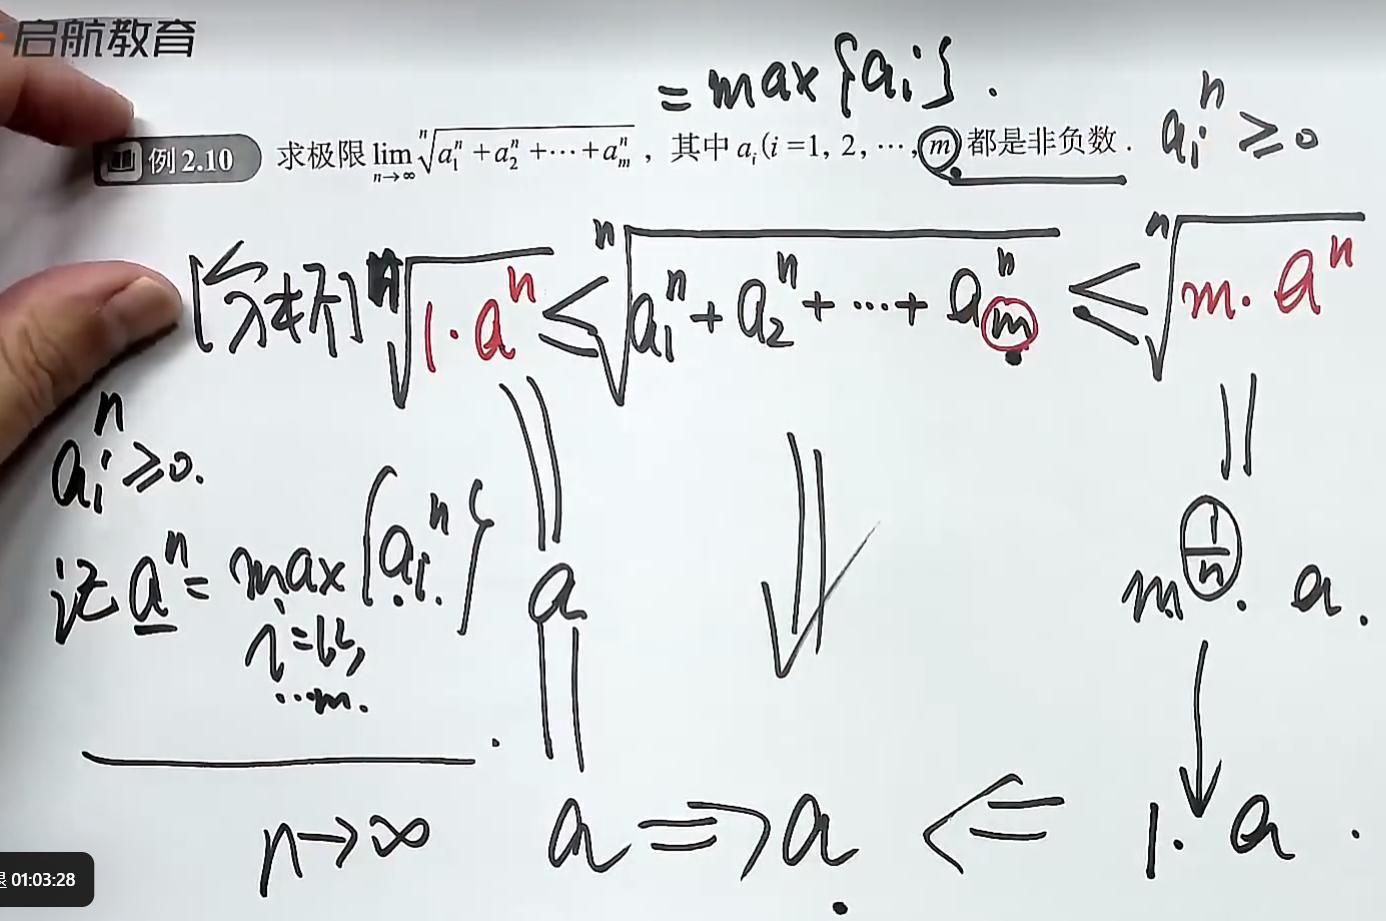 启航教育
= max{aᵢ}.
例2.10 求极限 lim_{n→∞} ⁿ√(a₁ⁿ+a₂ⁿ+⋯+aₘⁿ) ，其中 aᵢ(i=1, 2, ⋯, m)都是非负数． aᵢⁿ ≥ 0
[分析] ⁿ√(1·aⁿ) ≤ ⁿ√(a₁ⁿ + a₂ⁿ + ⋯ + aₘⁿ) ≤ ⁿ√(m·aⁿ)
aᵢⁿ ≥ 0.
记 aⁿ = max{aᵢⁿ} a m^{1/n} · a.
i=1,2,
⋯m.
n→∞ a ⇒ a ⇐ 1·a.
01:03:28